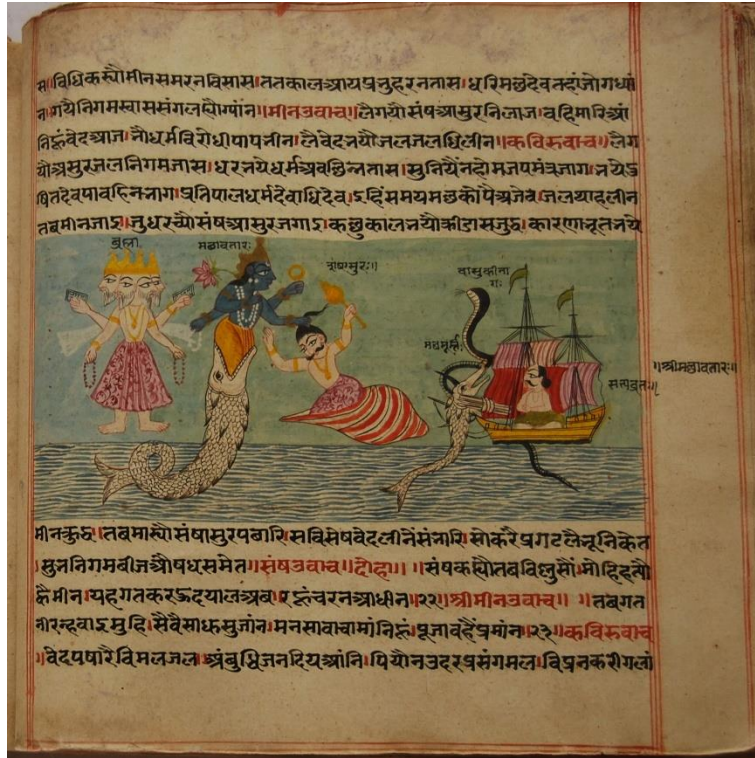 स।विधिकस्यौमीनसमरनविसास।ततकालआयप्रनुहरनतास।धरिमछदेवनदांजोगध्यां
न।गयैनिगमस्वाससंगलस्यौग्यांन॥मीनउवाच॥लैगयौसंषआसुरनिलाज।वहिमारिआं
निऊंवेदआज।नौधर्मविरोधीपापनीन।लैवेदनयौजलजलधिलीन॥कविरुवाच॥लैग
यौअसुरजलनिगमजास।धरनयेधर्मअवछिन्नतास।सुनियैनहोमजपमंत्रजाग।नयेऽ
षितदेवपावहिननाग।प्रतिपालधर्मदेवाधिदेव।ऽहिंसमयमछकोपैअजेव।जलथाहलीन
तबमीनजाऽ।जुधरच्यौसंषआसुरजगाऽ।कछुकालनयौक्रीडासजुद्ध।कारणानूतनये
ब्रह्मा
मछावतारः
शंषासुरः॥
वासुकीना
गः
मछमूर्त्ति
सत्यव्रतः॥
॥श्रीमछावतारः॥
मीनक्रुद्ध।तबमास्यौसंषासुरपचारि।सविसेषवेदलीनेसंनारि।सोकरेप्रगटलैनूनिकेत
।सुननिगमबीजऔषधसमेत॥संषउवाच॥दोहा॥॥संषकस्यौतबविष्नुसौं।मोहिहत्यौ
कैमीन।यहगतकरऊदयालअब।रऊंचरनआधीन।२२॥श्रीमीनउवाच॥॥तबगत
नारन्हवाऽमुहि।सेवैसाधसुजांन।मनसावाचामांनिऊं।पूजावहैप्रमांन।२३॥कविरुवाच
॥वेदपषारेविमलजल।अंबुधिजनदियआंनि।पियौनउदरप्रसंगमल।विप्रनकरीगलां